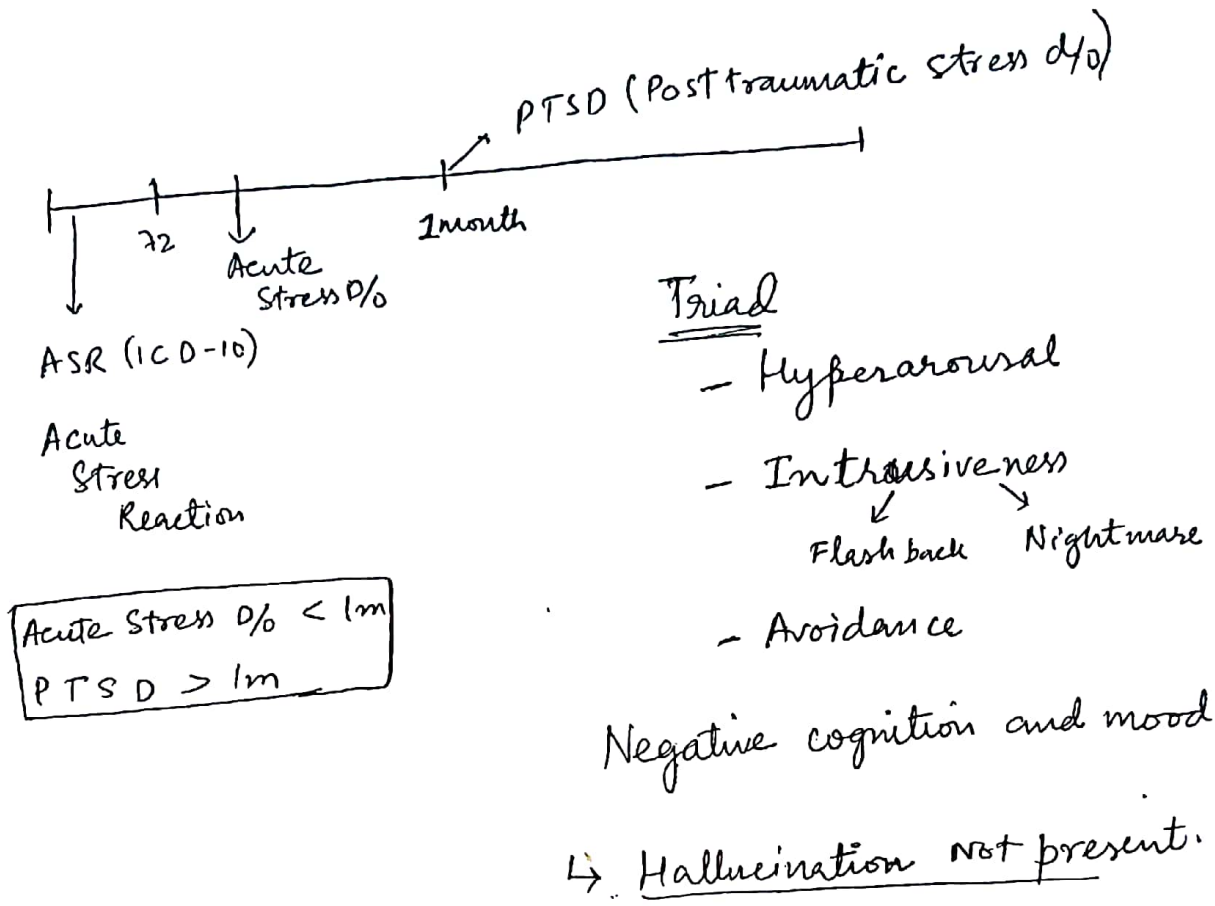 PTSD (Post traumatic stress d/o)
72
1month
Acute
Stress D/o
ASR (ICD-10)
Acute
Stress
Reaction
Acute Stress D/o < 1m
PTSD > 1m
Triad
- Hyperarousal
- Intrusiveness
Flash back Nightmare
- Avoidance
Negative cognition and mood
↳ Hallucination Not present.